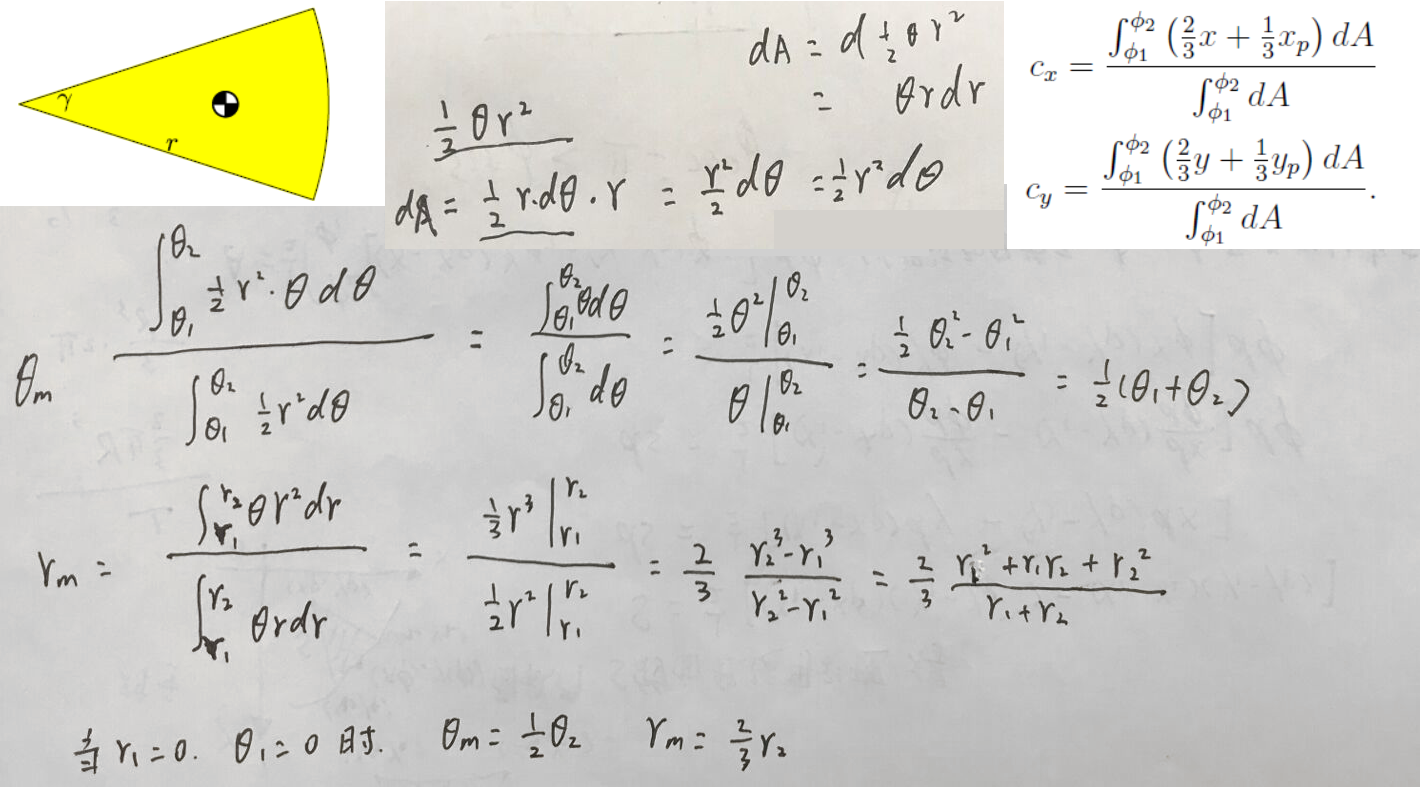 γ
r
dA = d ½ θ r²
= θ r dr
½ θ r²
dA = ½ r·dθ·r = r²/2 dθ = ½ r² dθ
c_x = ∫_{ϕ1}^{ϕ2} (⅔x + ⅓x_p) dA / ∫_{ϕ1}^{ϕ2} dA
c_y = ∫_{ϕ1}^{ϕ2} (⅔y + ⅓y_p) dA / ∫_{ϕ1}^{ϕ2} dA .
θm ∫_{θ₁}^{θ₂} ½ r²·θ dθ / ∫_{θ₁}^{θ₂} ½ r² dθ = ∫_{θ₁}^{θ₂} θdθ / ∫_{θ₁}^{θ₂} dθ = ½θ²|_{θ₁}^{θ₂} / θ|_{θ₁}^{θ₂} = ½ θ₂² - θ₁² / θ₂ - θ₁ = ½(θ₁+θ₂)
rm = ∫_{r₁}^{r₂} θ r² dr / ∫_{r₁}^{r₂} θ r dr = ⅓r³|_{r₁}^{r₂} / ½r²|_{r₁}^{r₂} = ⅔ (r₂³ - r₁³)/(r₂² - r₁²) = ⅔ (r₁² + r₁r₂ + r₂²)/(r₁ + r₂)
当 r₁=0. θ₁=0 时. θm = ½θ₂ rm = ⅔r₂